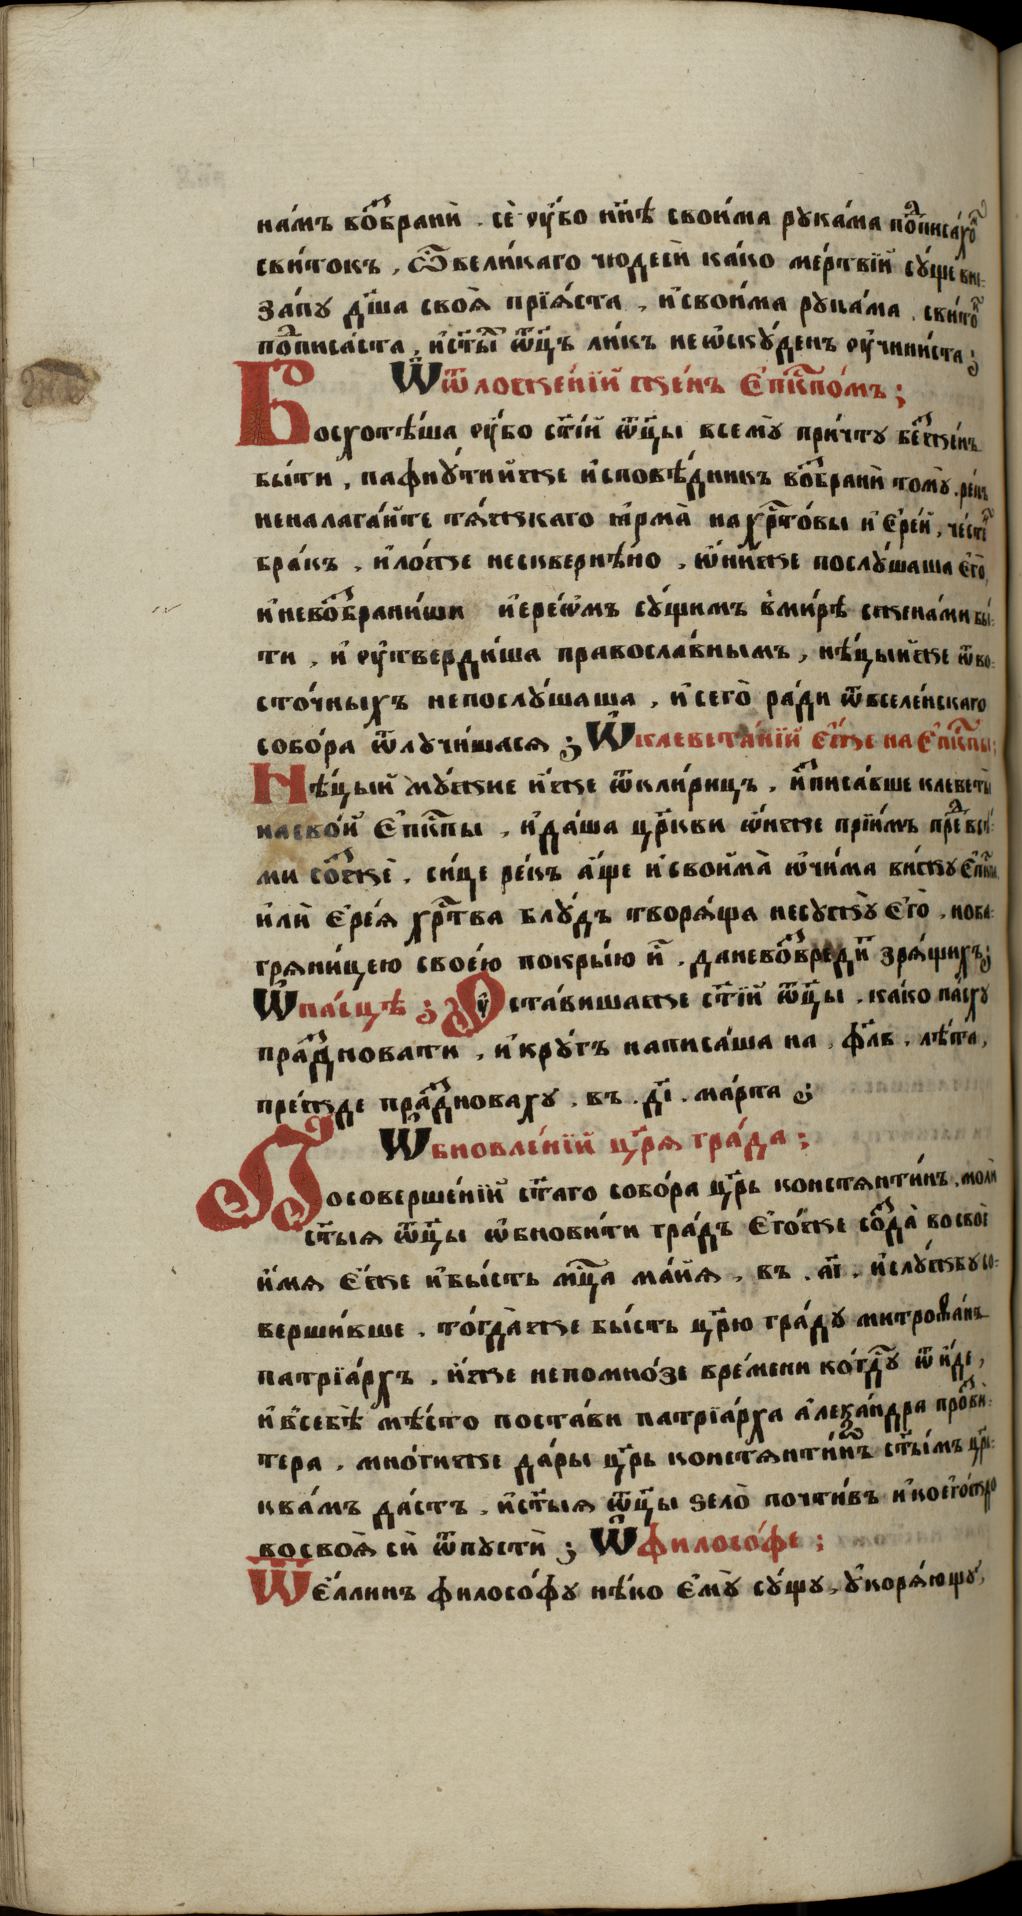 на́мъ во̑брани̑ . сѐ ᲂу҆́бо нн҃ѣ свои́ма рука́ма по̑писа́хо̑
сви́токъ , ѽ вели́каго чюдесѝ ка́ко ме́ртвїи су́ще вне-
за́пу дш҃а своѧ̑ прїѧ́ста , и҆ свои́ма рука́ма . сви́то̑
по̑писа́ста , и҆ ст҃ы́й ѿц҃ъ ли́къ не ѡ҆ску́денъ ᲂу҆чини́ста ;
Ѡ҆ ѿложе́нїи же́нъ є҆пⷭ҇кпо́мъ ;
Восхотѣ́ша ᲂу҆́бо ст҃і́и ѿц҃ы̀ всемꙋ̀ при́чту без̾ же́нъ
бы́ти , пафну́тїи же и҆сповѣ́дникъ во̑бранѝ томꙋ̀ . ре́къ
не налага́йте тѧ́жкаго ꙗ҆рма̀ на хрⷭ҇то́вы и҆ є҆ре́й , че́сте̑
бра́къ , и҆ ло́же несквернѣ́но , ѻ҆ни́ же послу́шаша є҆го̀
и҆ не во̑брани́ши и҆ере́ѡмъ су́щимъ в̾ ми́рѣ с̾ жена́ми бы́-
ти , и҆ ᲂу҆тверди́ша правосла́внымъ , нѣ́цыи же ѿ во-
сто́чныхъ не послу́шаша , и҆ сего̀ ра́ди ѿ вселе́нскаго
собо́ра ѿлучи́шасѧ ; Ѡ҆ клевета́нїи є҆́же на є҆пⷭ҇кпы ;
Нѣ́цыи му́жие и҆̀же ѿ кли́рицъ . и҆ писа́вше клеветы̀
на своѝ є҆пⷭ҇кпы , и҆ да́ша цр҃кви ѻ҆́нже прїи́мъ пре̑ все́-
ми со̑жжѐ . си́це ре́къ а҆́ще и҆ свои́ма ѻ҆чи́ма ви́жу є҆пⷭ҇кпа
и҆лѝ є҆ре́ѧ хрⷭ҇това блу́дъ творѧ́ща не сужду̀ є҆го̀ , но ба-
грѧни́цею свое́ю покры́ю и҆̀ . да не во̑вреди́т̾ зрѧ́щихъ ;
Ѡ҆ па́сцѣ ; Оу҆ста́виша же ст҃і́и ѿц҃ы̀ . ка́ко па́сху
пра́здновати , и҆ кру́гъ написа́ша на , фл҃в . лѣ́та ,
пре́жде пра́здноваху . въ . д҃і . ма́рта ;
Ѡ҆бновле́нїи цр҃ѧ гра́да ;
По соверше́нїи ст҃а́го собо́ра цр҃ь констѧнти́нъ . молѝ
ст҃ы́ѧ ѿц҃ы̀ ѡ҆бнови́ти гра́дъ є҆го́же созда̀ во своѐ
и҆́мѧ є҆́же и҆ бы́сть мцⷭ҇а ма́йѧ , въ . а҃і . и҆ слу́жбу со-
верши́вше . тогда́ же бы́сть цр҃ю гра́ду митрофа́нъ
патрїа́рхъ . и҆́же не по мно́зе вре́мени ко́ гдⷭ҇у ѿи҆́де ,
и҆ в̾ себѐ мѣ́сто поста́ви патрїа́рха а҆леѯа́ндра про̑ви-
тера , мно́ги же да́ры цр҃ь констѧнти́нъ ст҃ы́мъ цр҃-
ква́мъ да́стъ , и҆ ст҃ы́ѧ ѿц҃ы̀ ѕело̀ почти́въ и҆ коего́ждо
во своѧ̀ сѝ ѿпустѝ ; Ѡ҆ филосо́фе ;
Ѿ є҆́ллинъ филосо́фу нѣ́ко є҆мꙋ̀ су́щу , ᲂу҆корѧ́ющу ,